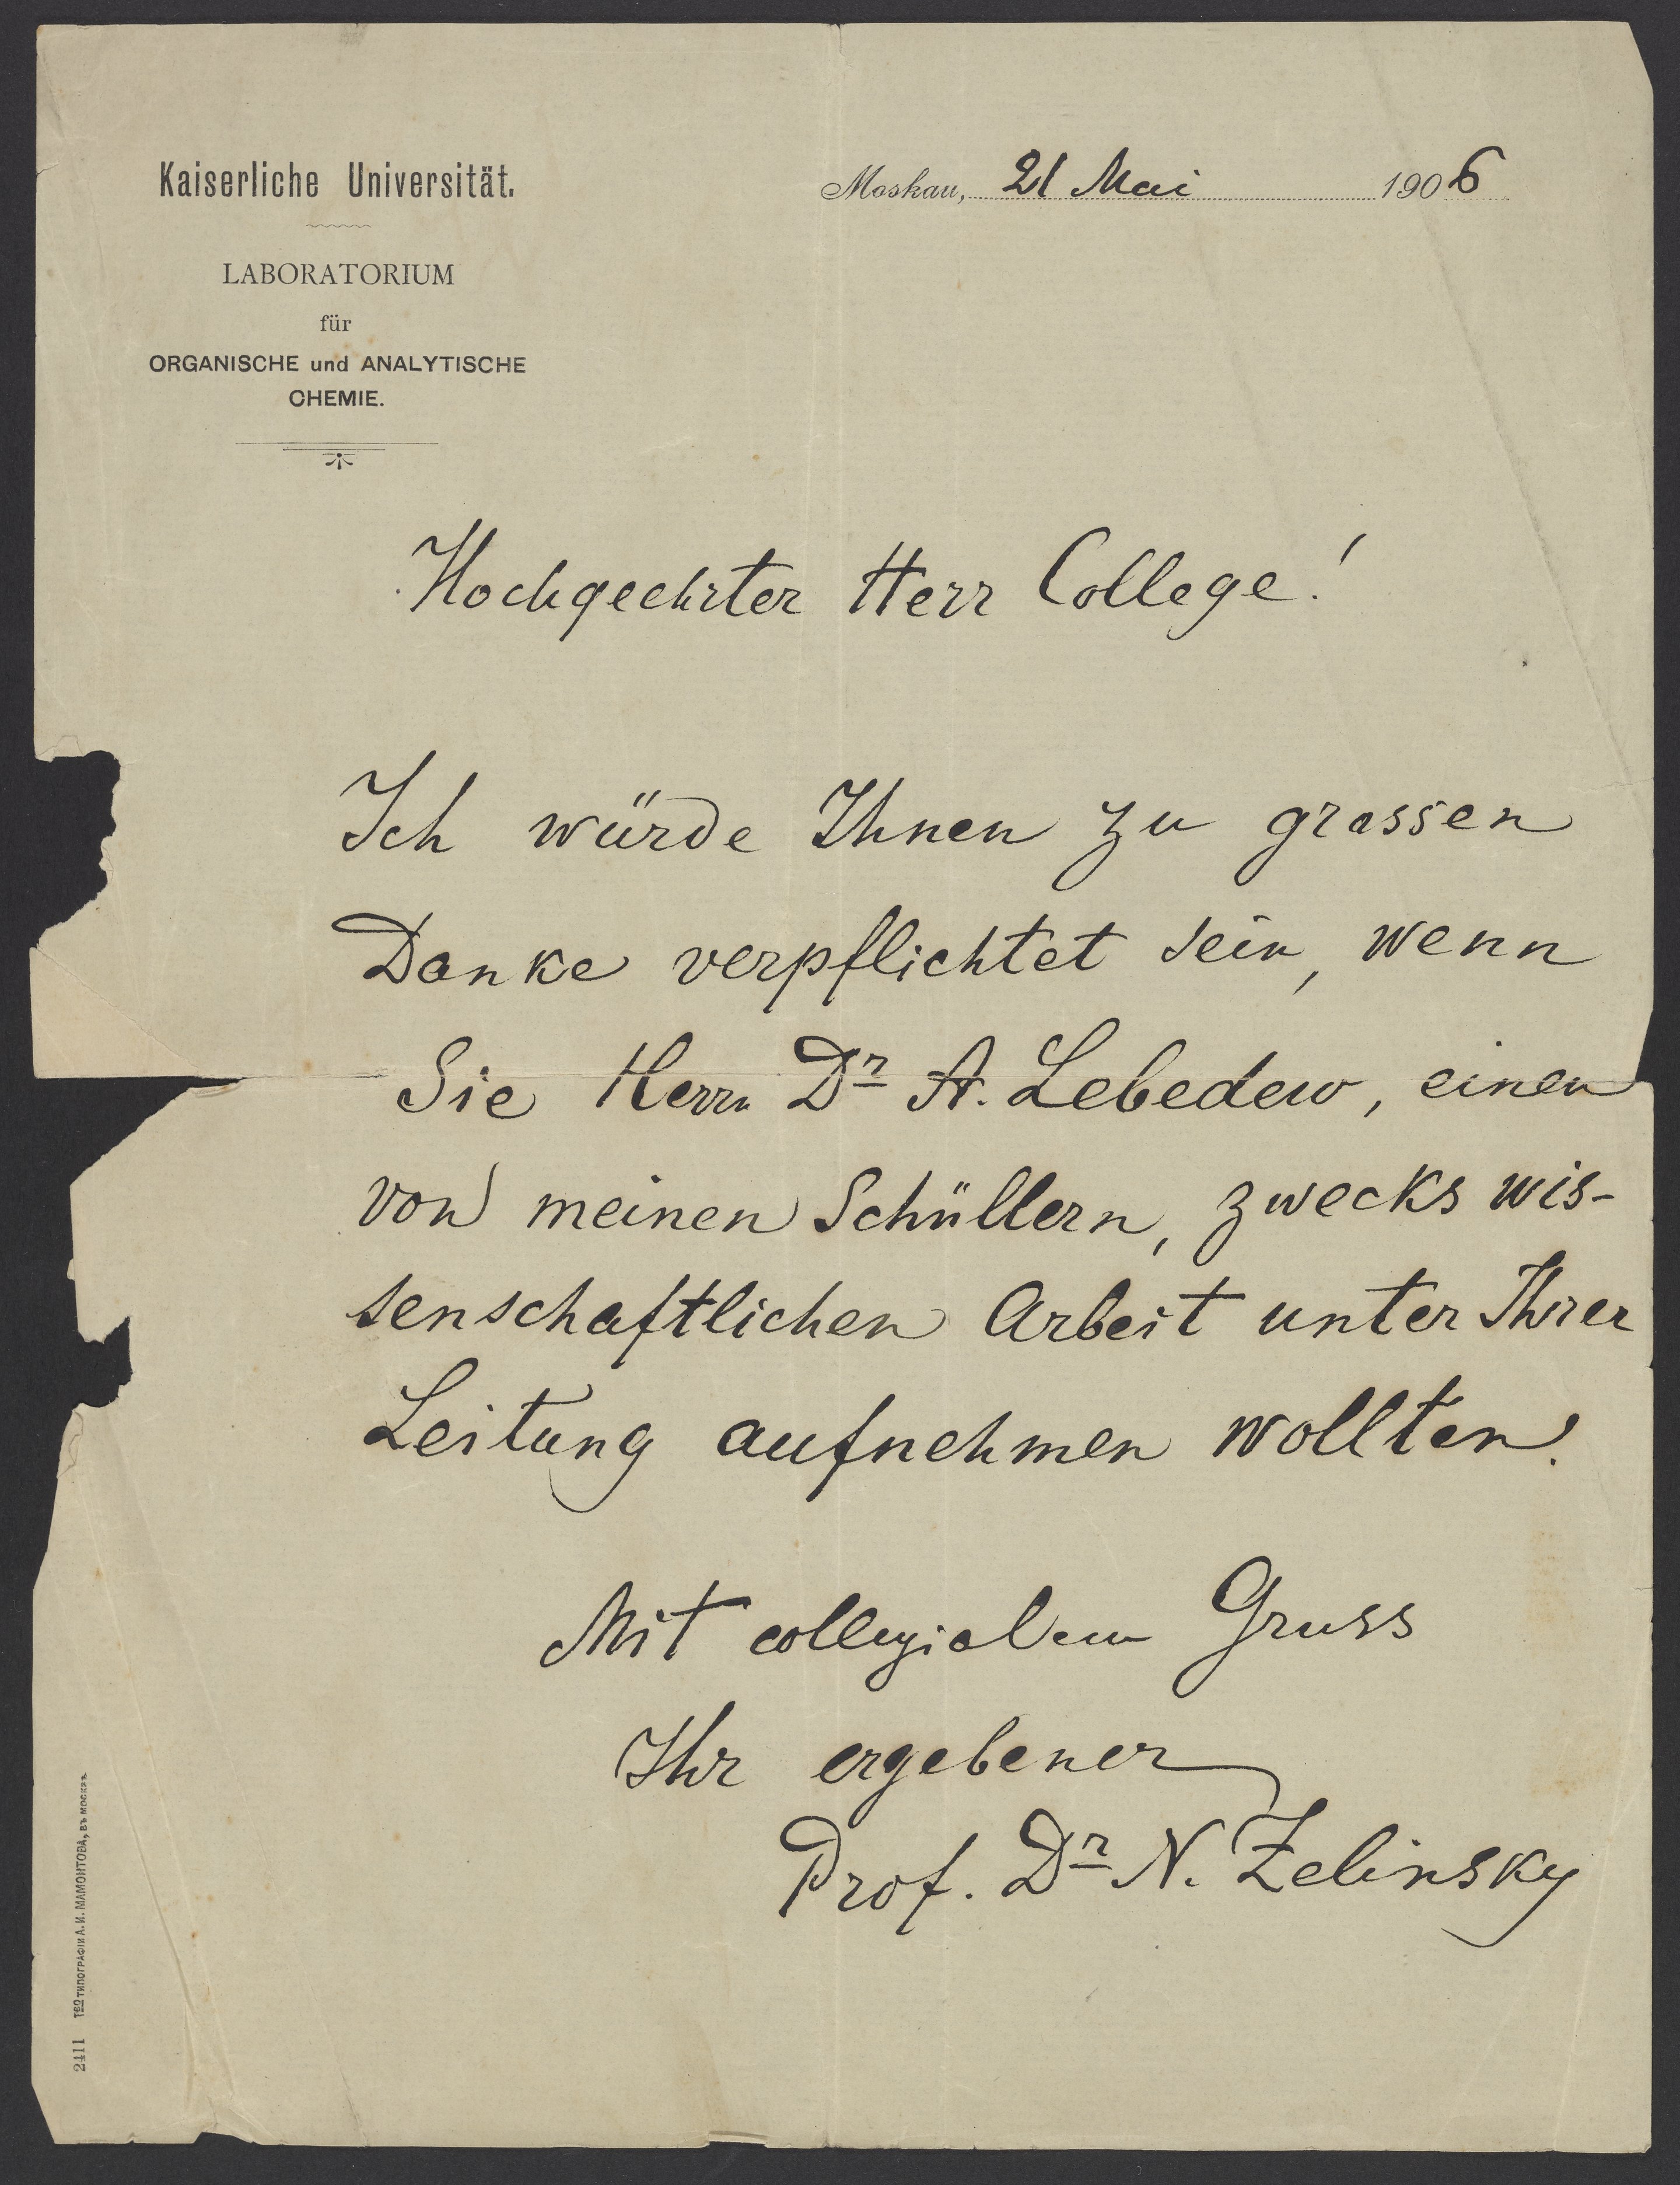 Kaiserliche Universität.
LABORATORIUM
für
ORGANISCHE und ANALYTISCHE
CHEMIE.
Moskau, 21 Mai 1906
Hochgeehrter Herr College!
Ich würde Ihnen zu grossen
Danke verpflichtet sein, wenn
Sie Herrn Dr A. Lebedew, einen
von meinen Schüllern, zwecks wis-
senschaftlichen Arbeit unter Ihrer
Leitung aufnehmen wollten.
Mit collegialem Gruss
Ihr ergebener
Prof. Dr N. Zelinsky
2411 Тво ТИПОГРАФІИ А. И. МАМОНТОВА, ВЪ МОСКВѢ.